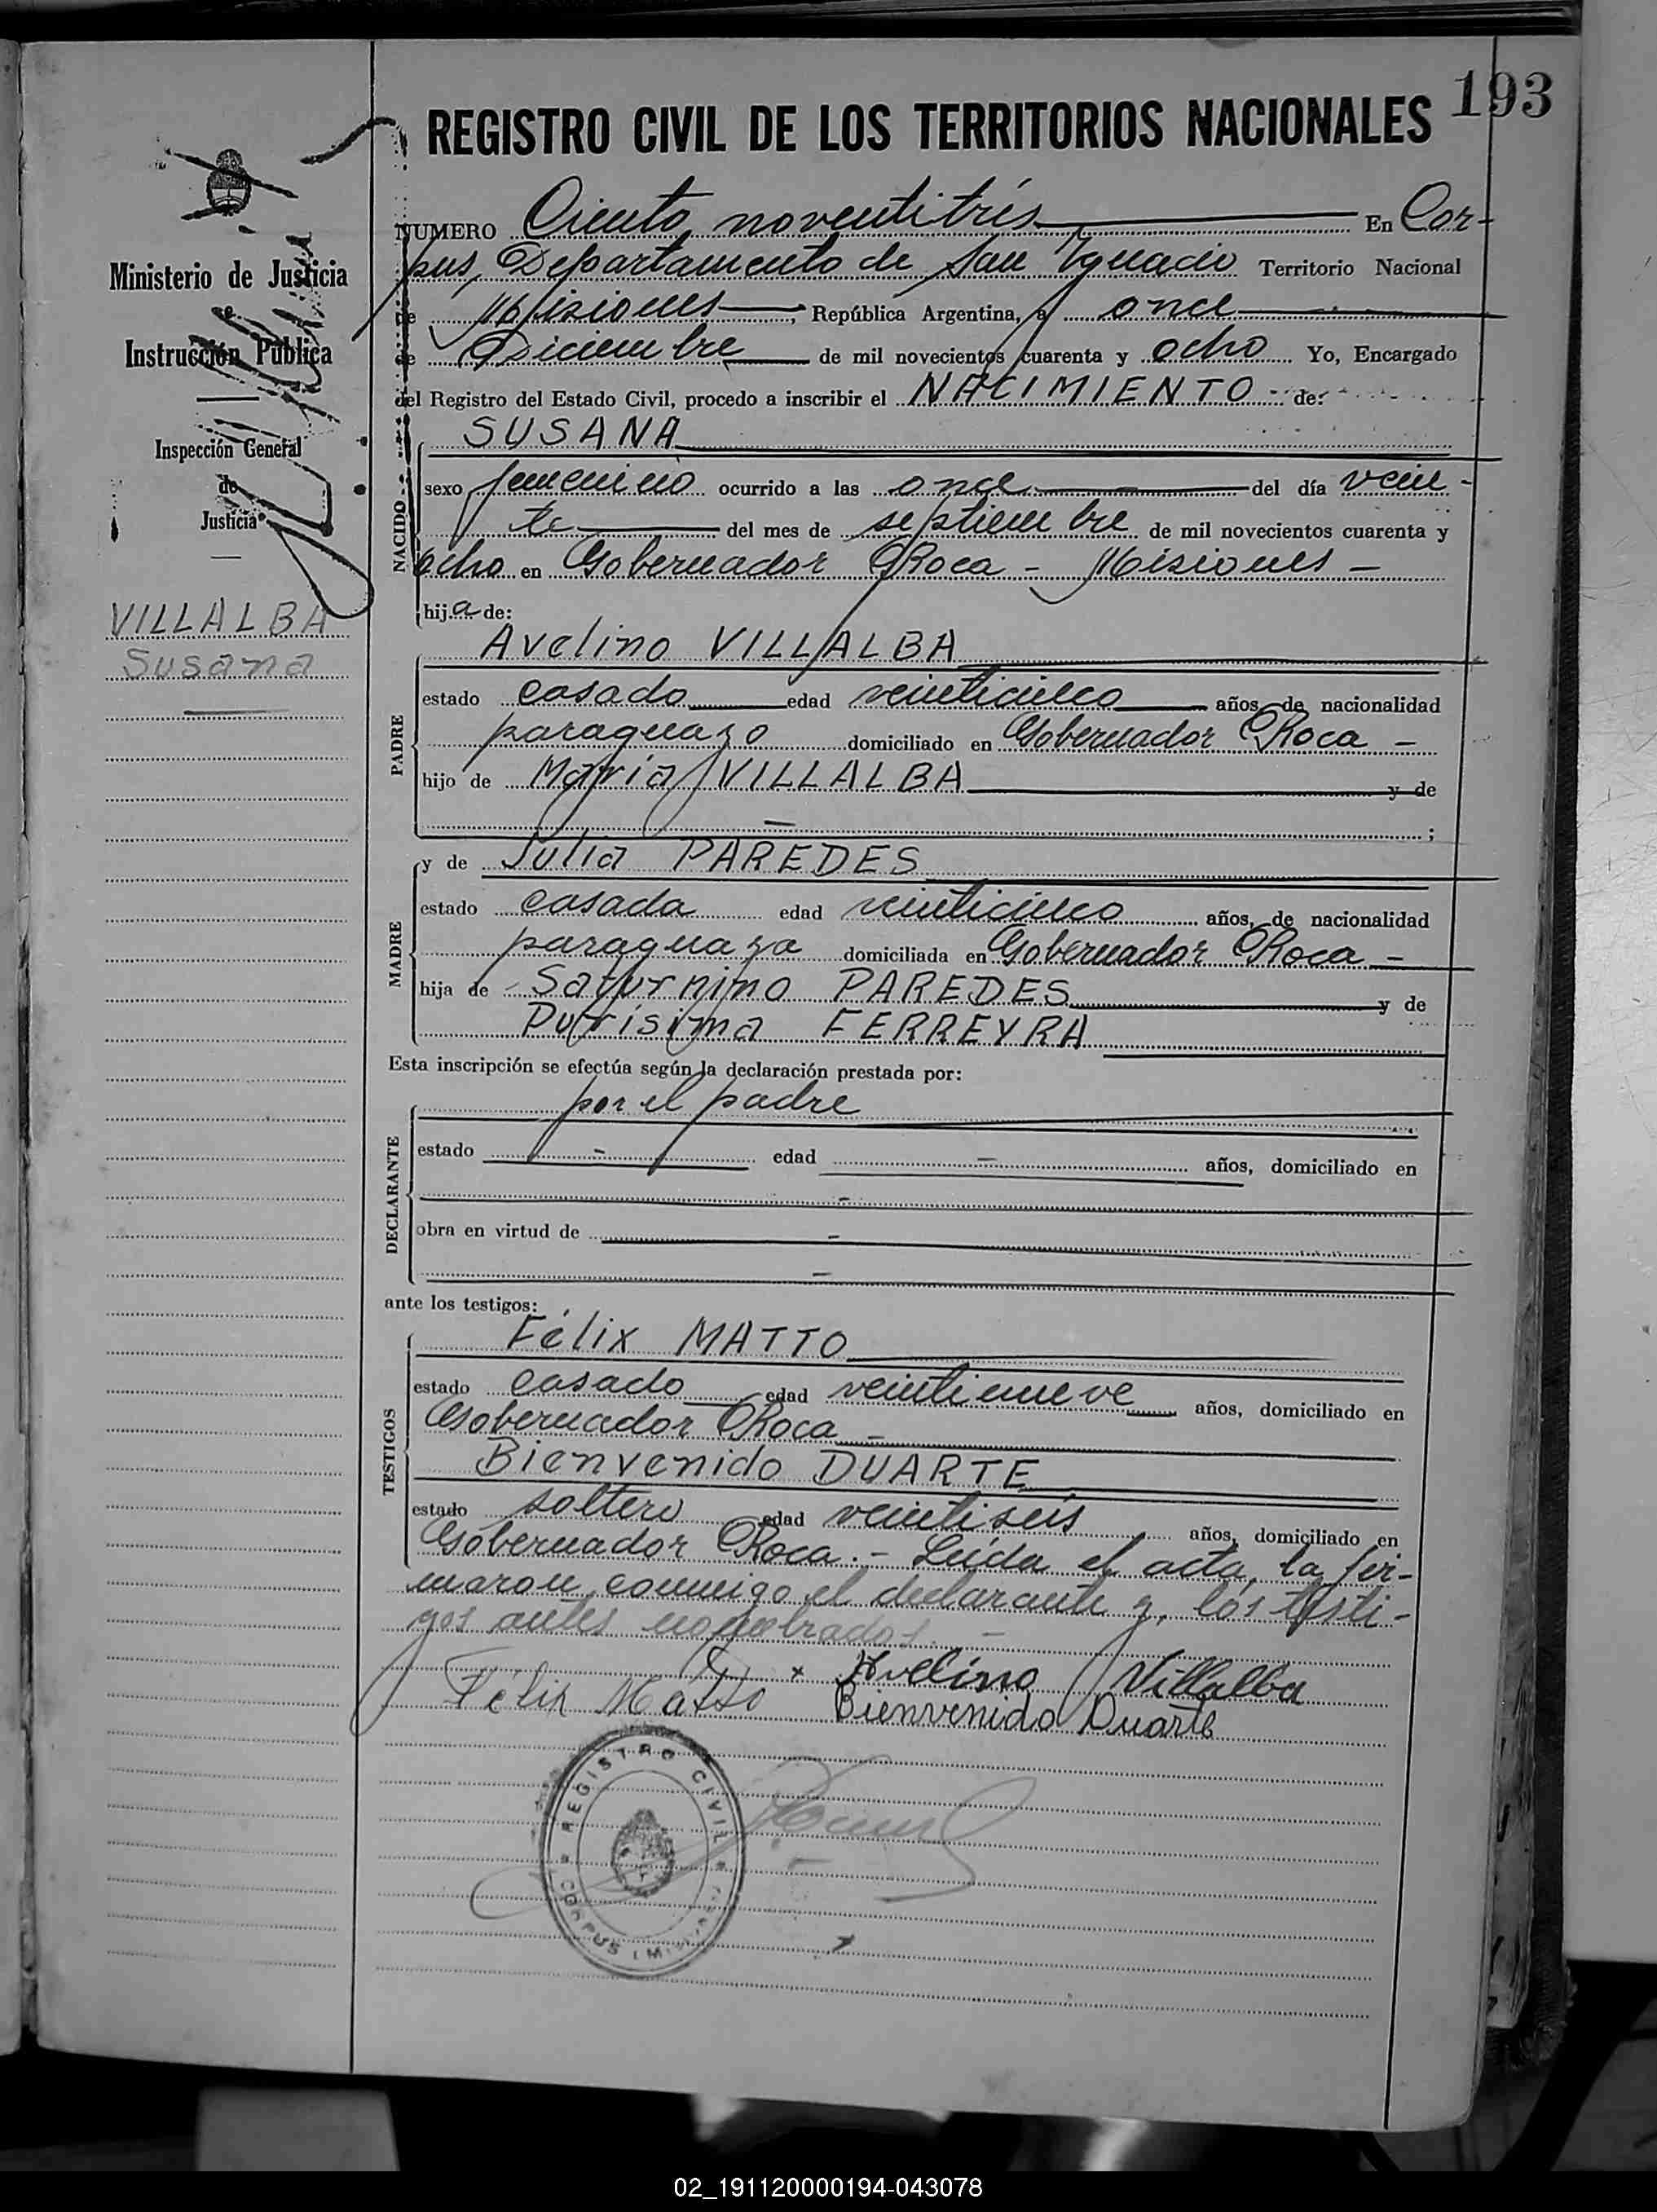 193
REGISTRO CIVIL DE LOS TERRITORIOS NACIONALES
NUMERO Ciento noventitrés En Cor-
pus, Departamento de San Ygnacio Territorio Nacional
de Misiones, República Argentina, a once
de Diciembre de mil novecientos cuarenta y ocho Yo, Encargado
del Registro del Estado Civil, procedo a inscribir el NACIMIENTO de:
Ministerio de Justicia
e
Instrucción Pública
Inspección General
de
Justicia
VILLALBA
Susana
NACIDO
SUSANA
sexo femenino ocurrido a las once del día vein-
te del mes de septiembre de mil novecientos cuarenta y
ocho en Gobernador Roca - Misiones -
hija de:
PADRE
Avelino VILLALBA
estado casado edad veinticinco años, de nacionalidad
paraguayo domiciliado en Gobernador Roca -
hijo de María VILLALBA y de
- ;
MADRE
y de Julia PAREDES
estado casada edad veinticinco años, de nacionalidad
paraguaya domiciliada en Gobernador Roca -
hija de Saturnino PAREDES y de
Purísima FERREYRA
Esta inscripción se efectúa según la declaración prestada por:
DECLARANTE
por el padre
estado - edad - años, domiciliado en
-
obra en virtud de -
-
ante los testigos:
TESTIGOS
Félix MATTO
estado casado edad veintinueve años, domiciliado en
Gobernador Roca -
Bienvenido DUARTE
estado soltero edad veintiseis años, domiciliado en
Gobernador Roca.- Leída el acta, la fir-
maron conmigo el declarante y los testi-
gos antes nombrados. -
x Avelino Villalba
Félix Matto Bienvenido Duarte
REGISTRO CIVIL
CORPUS (MISIONES)
02_191120000194-043078